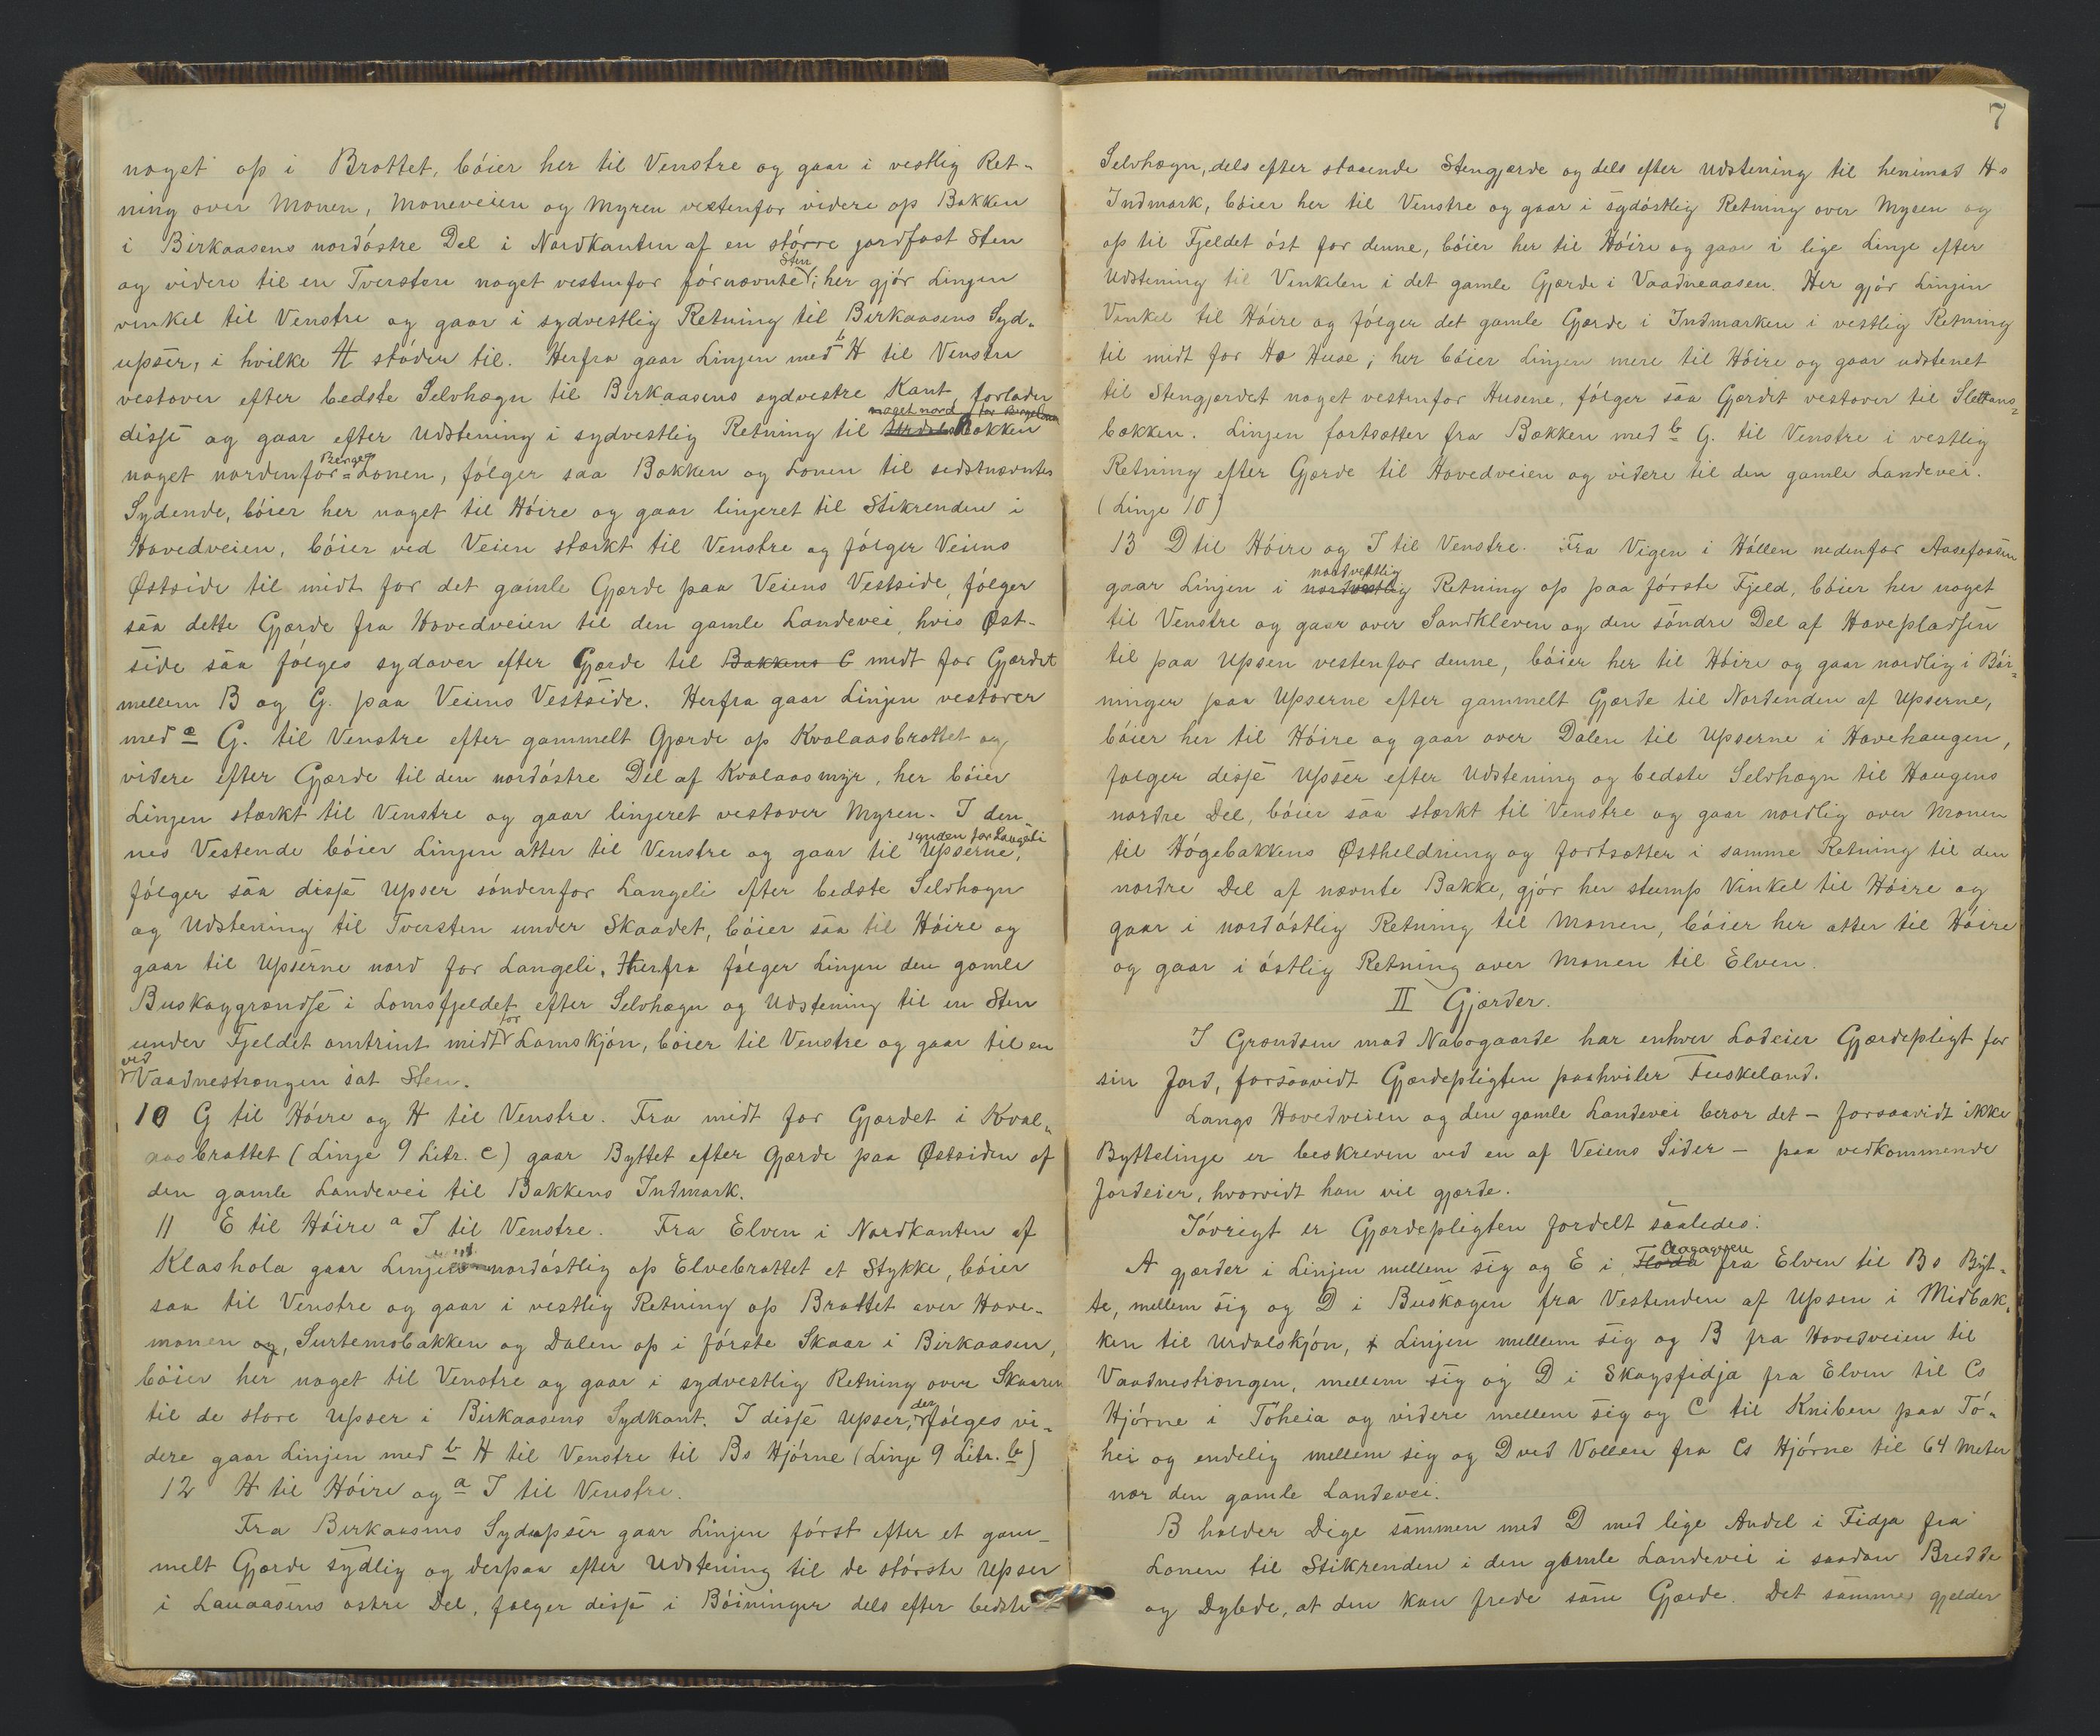 noget op i Brattet, bóier her til Venstre og gaar i vestlig Ret-
ning over Monen, Moneveien og Myren vestenfor videre op Bakken
i Birkaasens nordóstre Del i Nordkanten af en stórre jordfast Sten
og videre til en Tversten noget vestenfor fórnævnte Sten; her gjór Linjen
vinkel til Venstre og gaar i sydvestlig Retning til Birkaasens Syd-
upser, i hvilke H stóder til. Herfra gaar Linjen med b H til Venstre
vestover efter bedste Selvhægn til Birkaasens sydvestre Kant, forlader
disse og gaar efter Udstening i sydvestlig Retning til Bækken noget nord for
noget nordenfor Berge-Lonen, fólger saa Bækken og Lonen til sidstnævntes
Sydende, bóier her noget til Hóire og gaar linjeret til Stikrenden i
Hovedveien, bóier ved Veien stærkt til Venstre og fólger Veiens
Østside til midt for det gamle Gjærde paa Veiens Vestside, fólger
saa dette Gjærde fra Hovedveien til den gamle Landevei, hvis Øst-
side saa fólges sydover efter Gjærde til Bakkens C midt for Gjærdet
mellem B og G. paa Veiens Vestside. Herfra gaar Linjen vestover
med c G. til Venstre efter gammelt Gjærde op Kvalaasbrattet og
videre efter Gjærde til den nordóstre Del af Kvalaasmyr, her bóier
Linjen stærkt til Venstre og gaar linjeret vestover Myren. I den-
nes Vestende bóier Linjen atter til Venstre og gaar til Upserne synden for Langeli,
fólger saa disse Upser sóndenfor Langeli efter bedste Selvhægn
og Udstening til Tversten under Skaadet, bóier saa til Hóire og
gaar til Upserne nord for Langeli. Herfra fólger Linjen den gamle
Buskaggrændse i Lomsfjeldet efter Selvhægn og Udstening til en Sten
under Fjeldet omtrint midt for Lomskjón, bóier til Venstre og gaar til en
ved Vaadnestrængen sat Sten.
10 G til Hóire og H til Venstre. Fra midt for Gjærdet i Kval-
aasbrattet (Linje 9 Litr. C) gaar Byttet efter Gjærde paa Østsiden af
den gamle Landevei til Bakkens Indmark.
11 E til Hóire a I til Venstre. Fra Elven i Nordkanten af
Klashola gaar Linjen nordóstlig op Elvebrattet et Stykke, bóier
saa til Venstre og gaar i vestlig Retning op Brattet over Have-
monen og, Surtemsbakken og Dalen op i fórste Skaar i Birkaasen,
bóier her noget til Venstre og gaar i sydvestlig Retning over Skaaren
til de store Upser i Birkaasens Sydkant. I disse Upser, der fólges vi-
dere gaar Linjen med b H til Venstre til Bs Hjórne (Linje 9 Litr. b)
12 H til Hóire og a I til Venstre.
Fra Birkaasens Sydupser gaar Linjen fórst efter et gam-
melt Gjærde sydlig og derpaa efter Udstening til de stórste Upser
i Lauaasens óstre Del, fólger disse i Bóininger dels efter bedste
7
Selvhægn, dels efter staaende Stengjærde og dels efter Udstening til henimod Hs
Indmark, bóier her til Venstre og gaar i sydóstlig Retning over Myren og
op til Fjeldet óst for denne, bóier her til Hóire og gaar i lige Linje efter
Udstening til Vinkelen i det gamle Gjærde i Vaadneaasen. Her gjór Linjen
Vinkel til Hóire og fólger det gamle Gjærde i Indmarken i vestlig Retning
til midt for Hs Huse; her bóier Linjen mere til Hóire og gaar udstenet
til Stengjærdet noget vestenfor Husene, fólger saa Gjærdet vestover til Slettans-
bækken. Linjen fortsætter fra Bækken med b G. til Venstre i vestlig
Retning efter Gjærde til Hovedveien og videre til den gamle Landevei.
(Linje 10)
13 D til Hóire og I til Venstre. Fra Vigen i Hóllen nedenfor Aasefossen
gaar Linjen i nordvestlig nordvestlig Retning op paa fórste Fjeld, bóier her noget
til Venstre og gaar over Sandkleven og den sóndre Del af Havepladsen
til paa Upsen vestenfor denne, bóier her til Hóire og gaar nordlig i Bói-
ninger paa Upserne efter gammelt Gjærde til Nordenden af Upserne,
bóier her til Hóire og gaar over Dalen til Upserne i Havehaugen,
fólger disse Upser efter Udstening og bedste Selvhægn til Haugens
nordre Del, bóier saa stærkt til Venstre og gaar nordlig over Monen
til Hógebakkens Østheldning og fortsætter i samme Retning til den
nordre Del af nævnte Bakke, gjór her stump Vinkel til Hóire og
gaar i nordóstlig Retning til Monen, bóier her atter til Hóire
og gaar i óstlig Retning over Monen til Elven.
II Gjærder.
I Grændsen mod Nabogaarde har enhver Lodeier Gjærdepligt for
sin Jord, forsaavidt Gjærdepligten paahviler Fuskeland.
Langs Hovedveien og den gamle Landevei beror det - forsaavidt ikke
Byttelinje er beskreven ved en af Veiens Sider - paa vedkommende
Jordeier, hvorvidt han vil gjærde.
Ióvrigt er Gjærdepligten fordelt saaledes:
A gjærder i Linjen mellem sig og E i Florda fra Elven til Bs Byt-
te, mellem sig og D i Buskagen fra Vestenden af Upsen i Midbak-
ken til Urdalskjón, i Linjen mellem sig og B fra Hovedveien til
Vaadnestrængen, mellem sig og D i Skagsfidja fra Elven til Cs
Hjórne i Tóheia og videre mellem sig og C til Kniben paa Tó-
hei og endelig mellem sig og D ved Vollen fra Cs Hjórne til 64 Meter
nær den gamle Landevei.
B holder Dige sammen med D med lige Andel i Fidja fra
Lonen til Stikrenden i den gamle Landevei i saadan Bredde
og Dybde, at den kan frede som Gjærde. Det samme gjelder